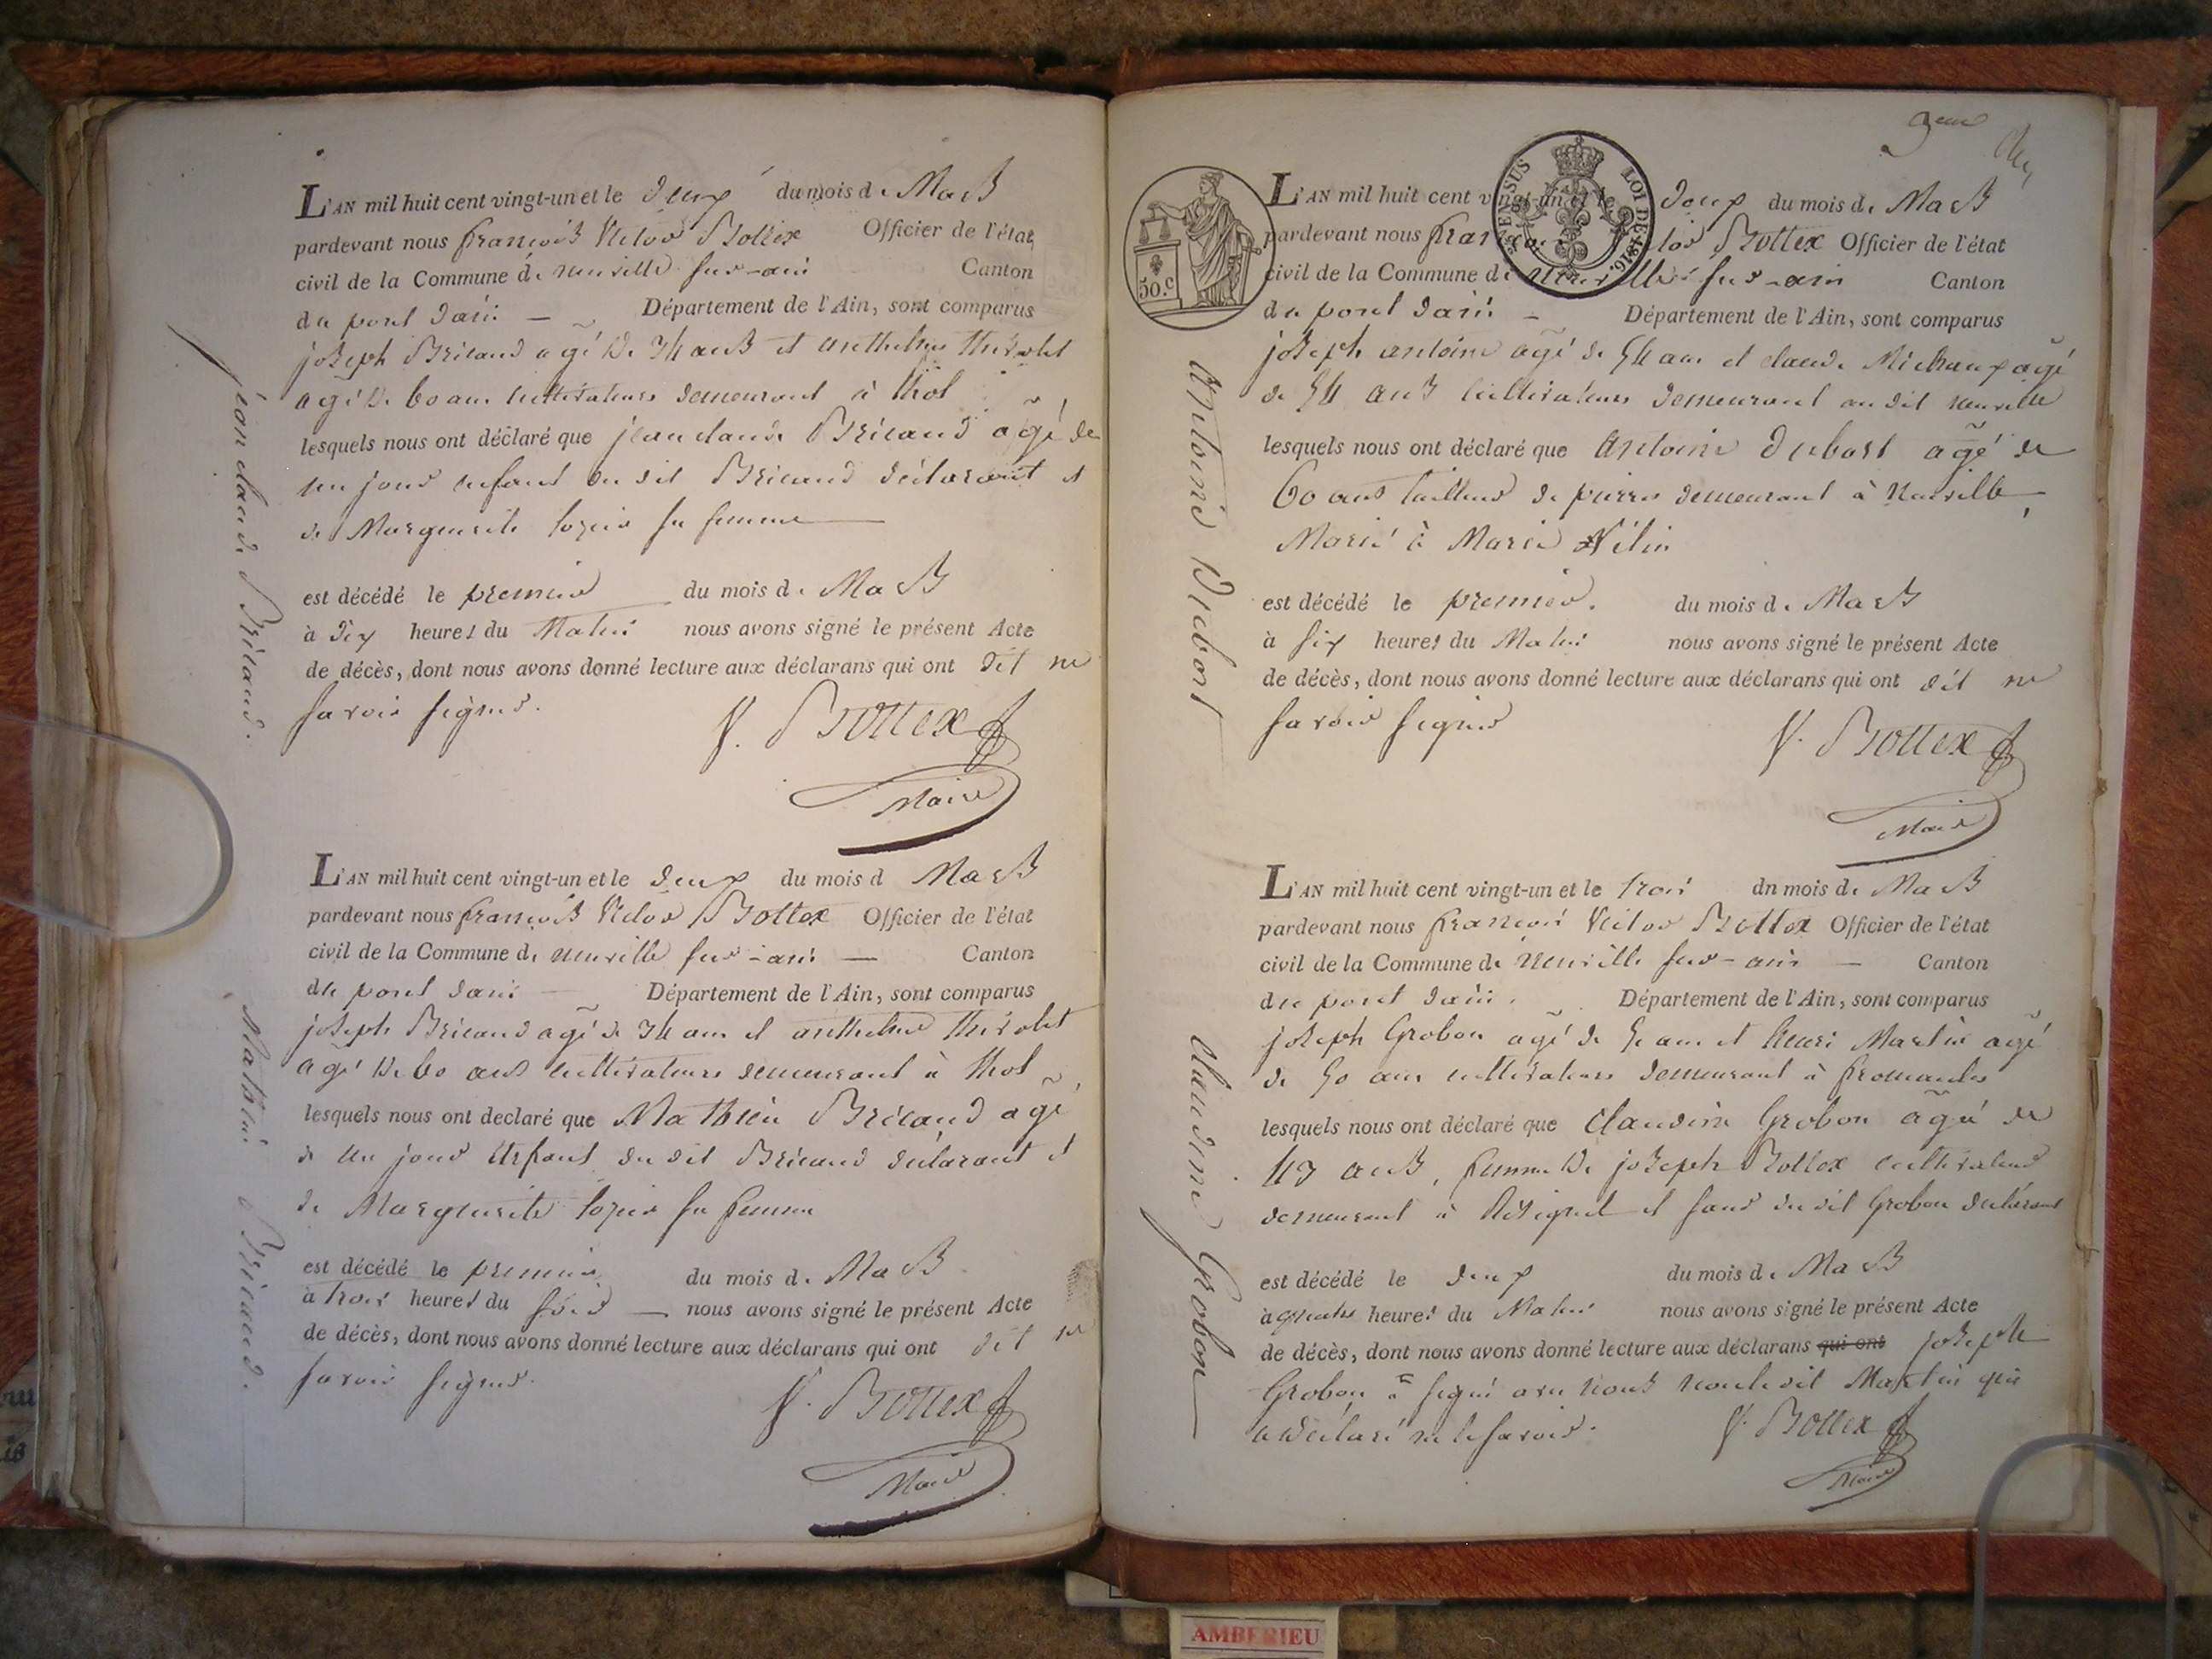 jean claude Briland.
L'AN mil huit cent vingt-un et le deux du mois de Mars
pardevant nous françois Victor Bottex Officier de l'état
civil de la Commune de neuville sur-ain Canton
du pont dain — Département de l'Ain, sont comparus
joseph Briland agé de 34 ans et anthelme thévolet
agé de 60 ans cultivateurs demeurant à thol
lesquels nous ont déclaré que jean claude Briland agé de
un jour enfant du dit Briland déclarant et
de Marguerite sa femme
est décédé le premier du mois de Mars
à dix heures du Matin nous avons signé le présent Acte
de décès, dont nous avons donné lecture aux déclarans qui ont dit ne
savoir signer.
V. Bottex
Maire
Mathieu Briland.
L'AN mil huit cent vingt-un et le deux du mois d Mars
pardevant nous françois Victor Bottex Officier de l'état
civil de la Commune de neuville sur-ain — Canton
du pont dain — Département de l'Ain, sont comparus
joseph Briland agé de 34 ans et anthelme thévolet
agé de 60 ans cultivateurs demeurant à thol
lesquels nous ont declaré que Mathieu Briland agé
de un jour Enfant du dit Briland déclarant et
de Marguerite sa femme
est décédé le premier du mois de Mars
à trois heures du soir — nous avons signé le présent Acte
de décès, dont nous avons donné lecture aux déclarans qui ont dit ne
savoir signer.
V. Bottex
Maire
9eme
50.c
LOI DE 1816.
Antoine Dubost
L'AN mil huit cent vingt-un et le deux du mois de Mars
pardevant nous françois Victor Bottex Officier de l'état
civil de la Commune de Neuville sur-ain Canton
du pont dain — Département de l'Ain, sont comparus
joseph antoine agé de 54 ans et claude Michaux agé
de 54 ans cultivateurs demeurant au dit neuville
lesquels nous ont déclaré que Antoine Dubost agé de
60 ans tailleur de pierres demeurant à Neuville,
Marié à Marie Vélin
est décédé le premier. du mois de Mars
à six heures du Matin nous avons signé le présent Acte
de décès, dont nous avons donné lecture aux déclarans qui ont dit ne
savoir signer
V. Bottex
Maire
Claudine Grobon
L'AN mil huit cent vingt-un et le trois dn mois de Mars
pardevant nous françois Victor Bottex Officier de l'état
civil de la Commune de Neuville sur-ain — Canton
du pont dain. Département de l'Ain, sont comparus
joseph Grobon agé de ans et henri Martin agé
de 50 ans cultivateurs demeurant à fromentes
lesquels nous ont déclaré que Claudine Grobon agé de
43 ans, femme de joseph Bottex cultivateur
demeurant à Résignel et sœur du dit Grobon déclarant
est décédé le deux du mois de Mars
à quatre heures du Matin nous avons signé le présent Acte
de décès, dont nous avons donné lecture aux déclarans qui ont joseph
Grobon à signé avec nous non le dit Martin qui
a déclaré ne le savoir.
V. Bottex
Maire
AMBERIEU